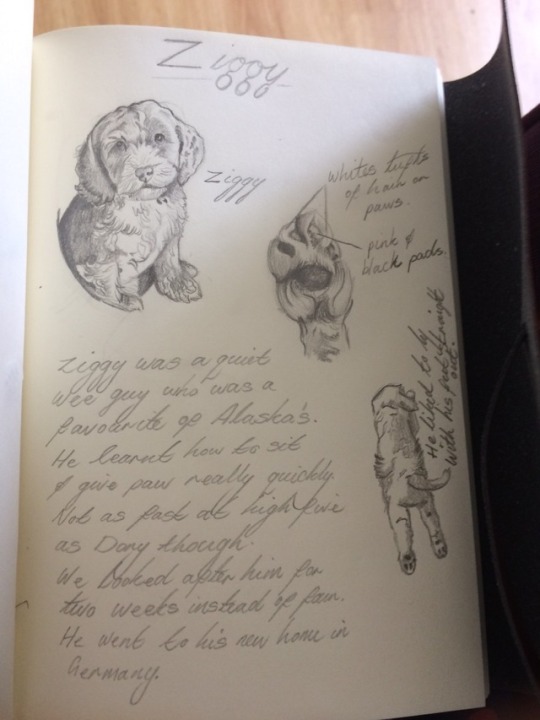 Ziggy
Ziggy
Whites tufts
of hair on
paws.
pink &
black pads.
He liked to lay
with his feet straight
out.
Ziggy was a quiet
wee guy who was a
favourite of Alaska's.
He learnt how to sit
& give paw really quickly.
Not as fast at high five
as Dany though.
We looked after him for
two weeks instead of four.
He went to his new home in
Germany.